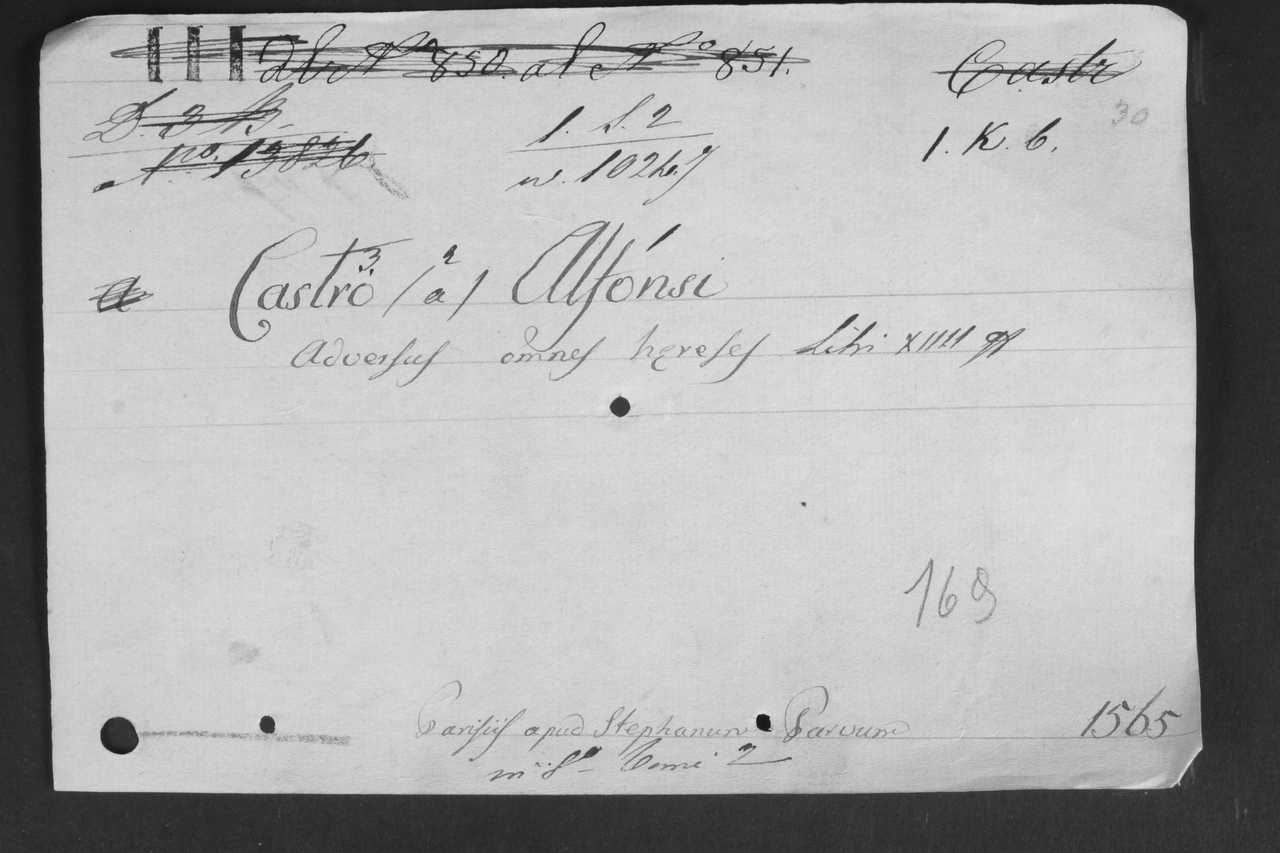 III ab Nº 850. al Nº 851. Castr
D. 3 B. 1. S. 2 30
Nº. 13826 n. 1026.7 1. K. 6.
a Castrò 3 (a) 2 Alfónsi
Adversus omnes hęreses Libri XIIII
169
Parisiis apud Stephanum Parvum 1565
in 8º Tomi 2